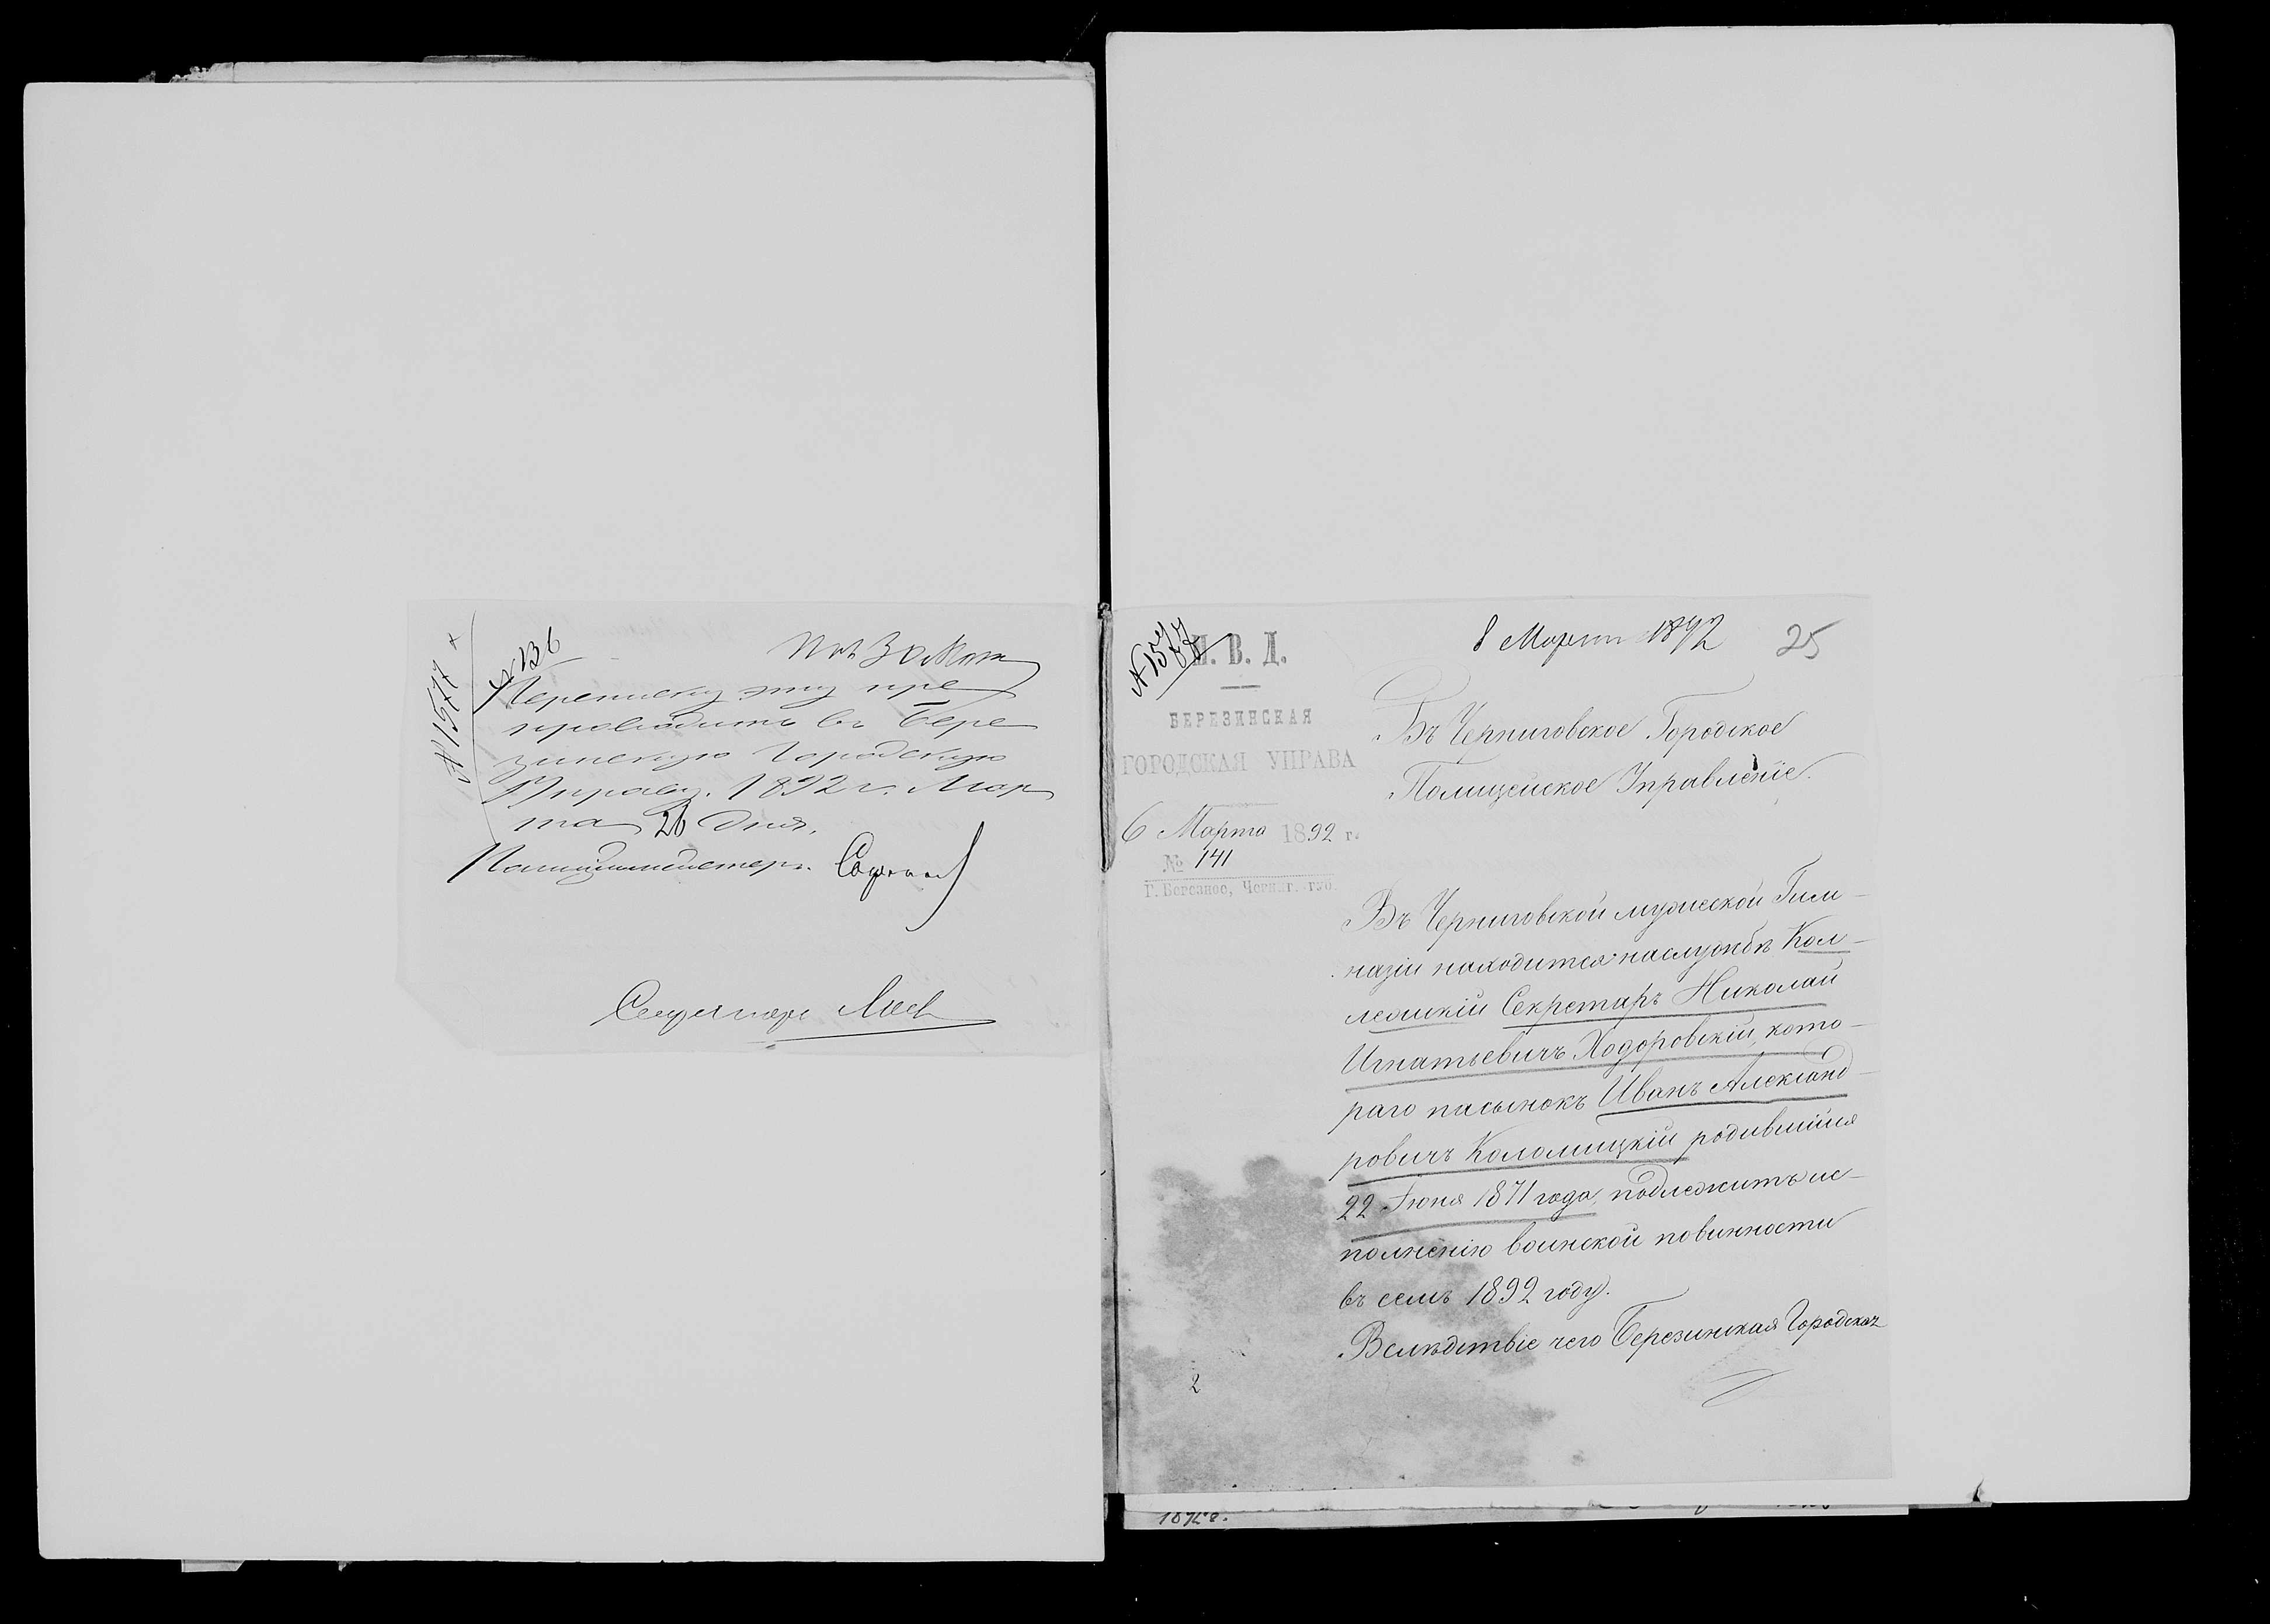 № 1577
№ 136
Переписку эту пре
проводить въ Бере
зинскую Городскую
Управу. 1892 г. Мар
та 26 дня.
Полицiймейстеръ
Секретарь
№ 1577
М. В. Д.
БЕРЕЗИНСКАЯ
ГОРОДСКАЯ УПРАВА
6 Марта 1892 г.
№ 141
Г. Березное, Черниг. губ.
8 Марта 1892
25
Въ Черниговское Городское
Полицейское Управленіе.
Въ Черниговской мужеской Гим-
назіи находится на службѣ Кол-
лежскій Секретарь Николай
Игнатьевичъ Ходоровскій, кото-
раго пасынокъ Иванъ Александ-
ровичъ Коломицкій родившійся
22 Іюня 1871 года, подлежитъ ис-
полненію воинской повинности
въ семъ 1892 году.
Вслѣдствіе чего Березинская Городская
2